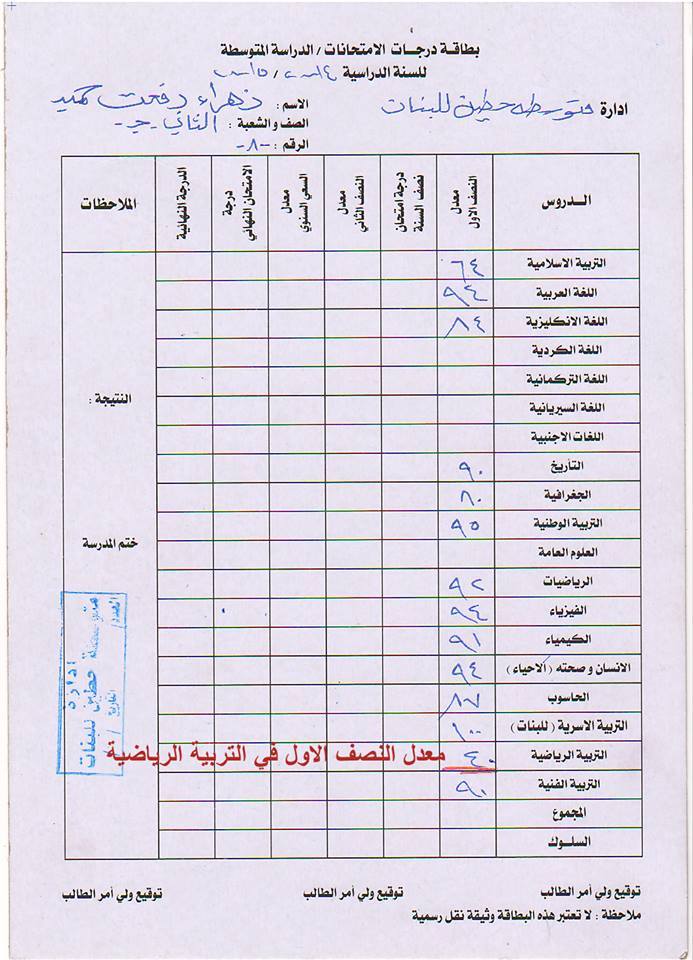 بطاقة درجات الامتحانات / الدراسة المتوسطة
للسنة الدراسية ٢٠١٤ / ٢٠١٥
ادارة متوسطة حطين للبنات
الاسم : زهراء رفعت حميد
الصف والشعبة : الثاني -ج-
الرقم : -٨-
الـدروس معدل النصف الاول درجة امتحان نصف السنة معدل النصف الثاني معدل السعي السنوي درجة الامتحان النهائي الدرجة النهائية الملاحظات
التربية الاسلامية ٦٤
اللغة العربية ٩٤
اللغة الانكليزية ٨٤
اللغة الكردية
اللغة التركمانية
النتيجة :
اللغة السيريانية
اللغات الاجنبية
التأريخ ٩٠
الجغرافية ٨٠
التربية الوطنية ٩٥
ختم المدرسة
العلوم العامة
الرياضيات ٩٢
الفيزياء ٩٤
الكيمياء ٩١
الانسان وصحته (الاحياء) ٩٤
الحاسوب ٨٧
التربية الاسرية (للبنات) ١٠٠
التربية الرياضية ٤٠ معدل النصف الاول في التربية الرياضية
التربية الفنية ٩٠
المجموع
السلوك
ادارة
متوسطة حطين للبنات
العدد /
التاريخ /
توقيع ولي أمر الطالب توقيع ولي أمر الطالب توقيع ولي أمر الطالب
ملاحظة : لا تعتبر هذه البطاقة وثيقة نقل رسمية